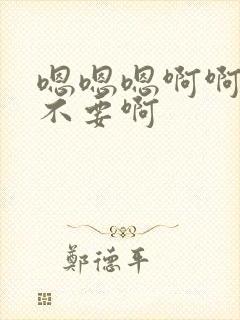 嗯嗯嗯啊啊
不要啊
鄭德平